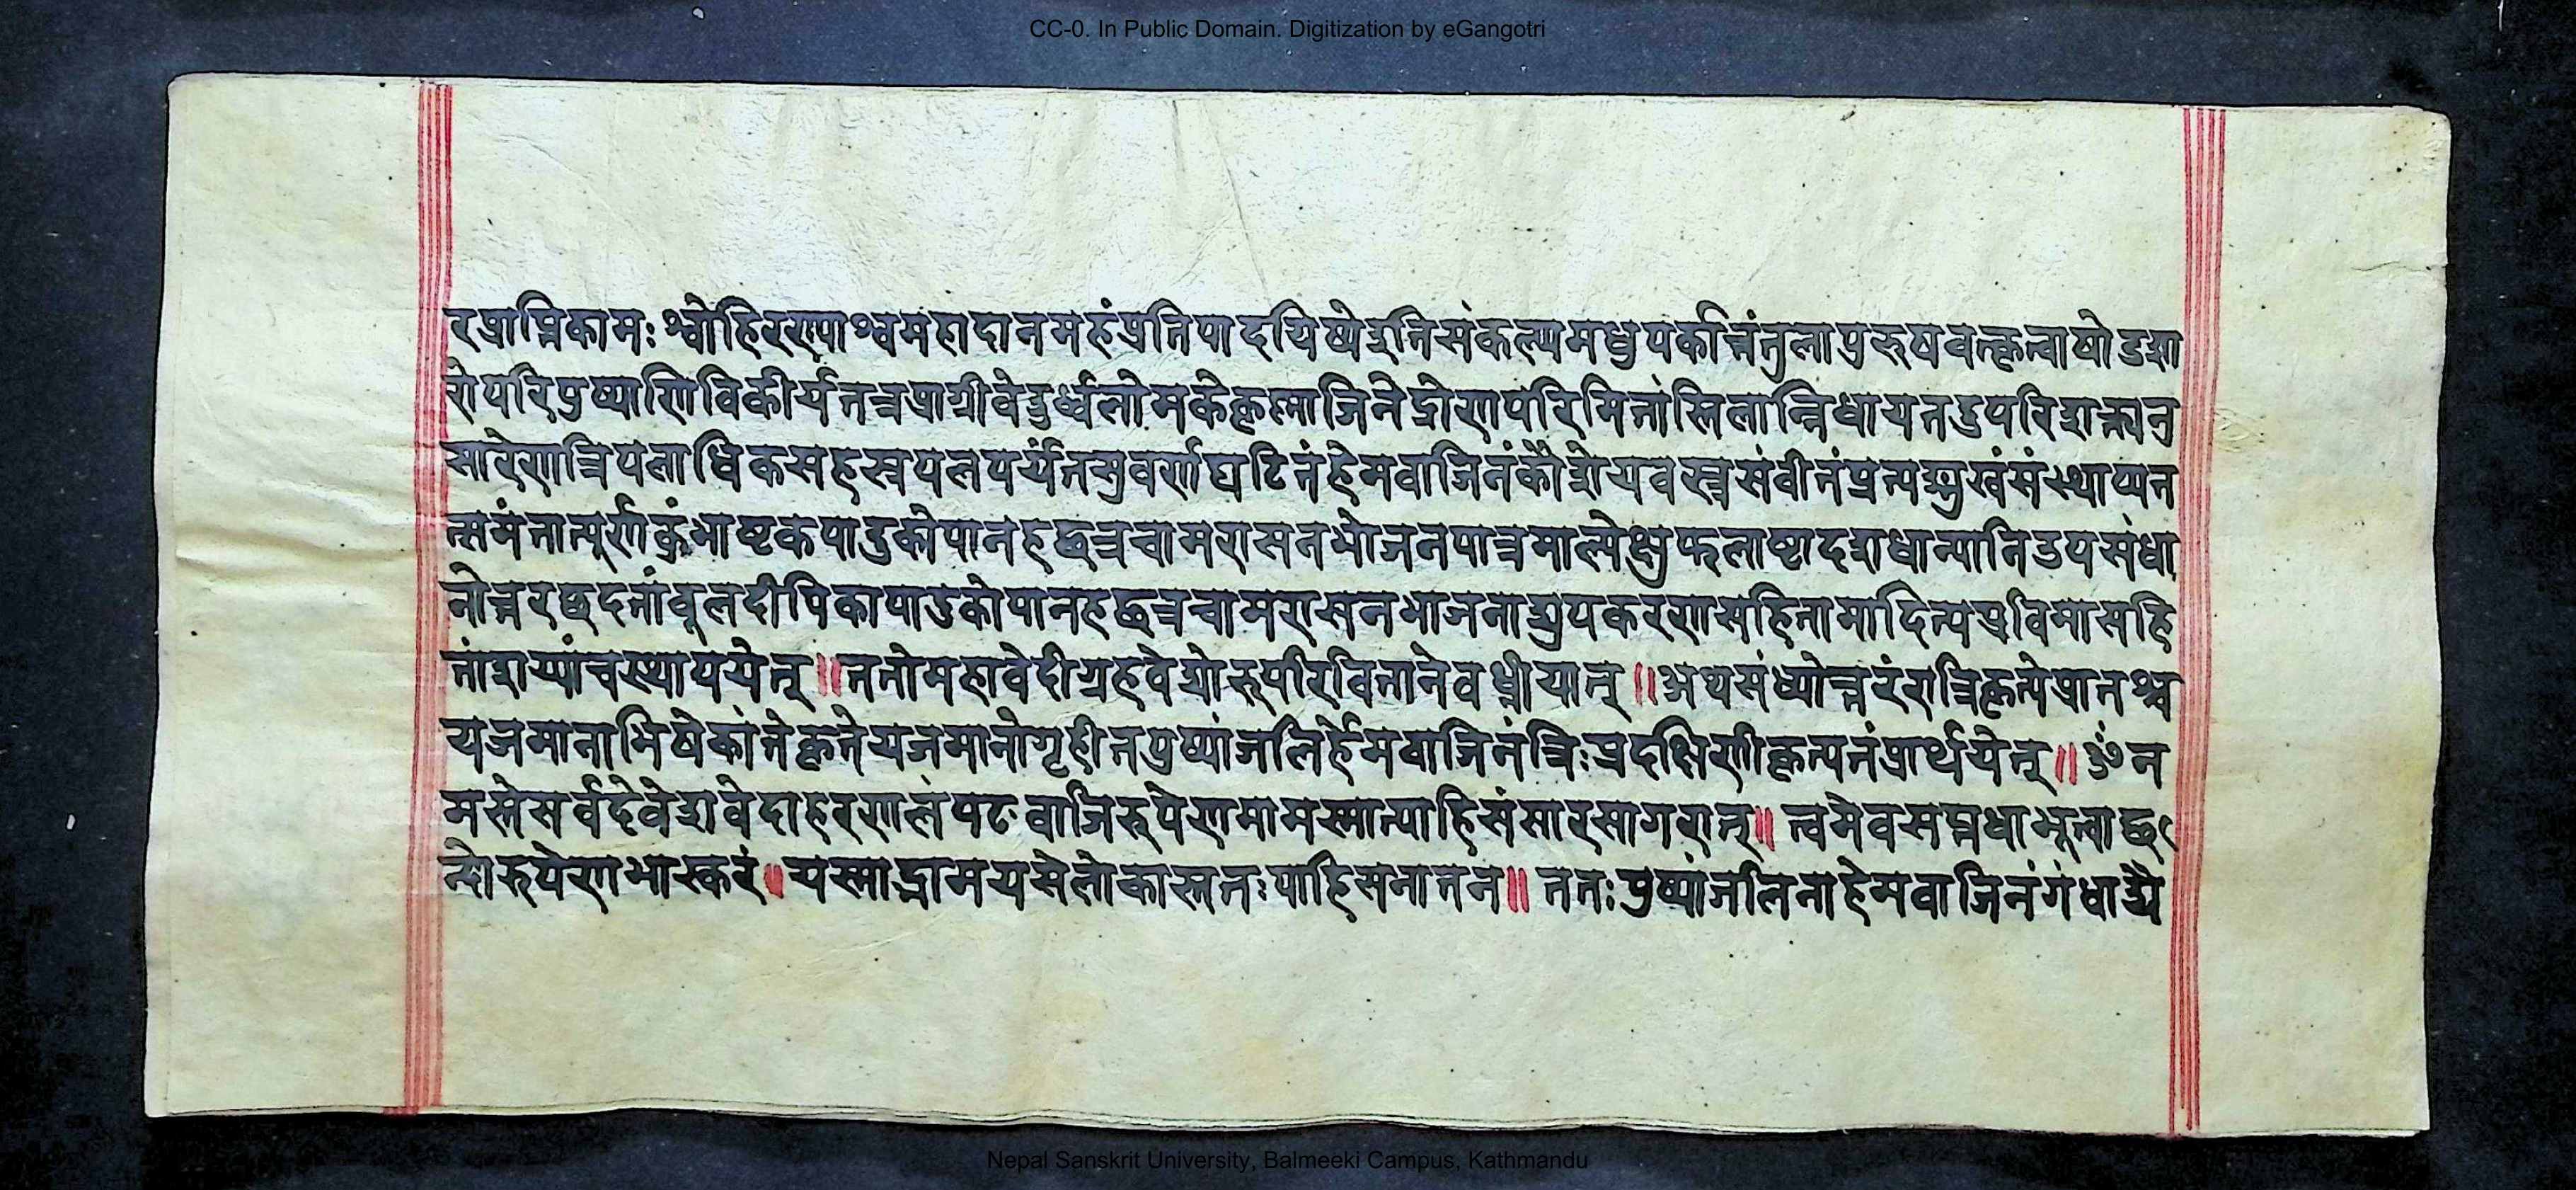 CC-0. In Public Domain. Digitization by eGangotri
रप्राप्तिकामः श्वोहिरण्याश्वमहादानमहंप्रतिपादयिष्येइतिसंकल्प्यमधुपर्कांतंतुलापुरुषवत्कृत्वाषोडशा
रोपरिपुष्पाणिविकीर्यतत्रप्राग्ग्रीवेदुर्ध्वलोमकेकृष्णाजिनेद्रोणपरिमितांस्तिलान्निधायतदुपरिशक्त्यनु
सारेणत्रिपलाधिकसहस्रपलपर्यंतसुवर्णघटितंहेमवाजिनंकौशेयवस्त्रसंवीतंप्रत्यङ्मुखंसंस्थाप्यत
त्समंतात्पूर्णकुंभाष्टकपादुकोपानहछत्रचामरासनभोजनपात्रमाल्येक्षुफलाष्टादशधान्यानिउपसंधा
नोत्तरछदतांबूलदीपिकापादुकोपानहछत्रचामरासनभाजनाद्युपकरणसहितामादित्यप्रतिमासहि
तांशय्यांचस्थापयेत् ॥ ततोमहावेदीग्रहवेद्योरुपरिवितानेवध्नीयात् ॥ अथसंध्योत्तरंरात्रिकृत्येप्रातश्च
यजमानाभिषेकांतेकृतेयजमानोगृहीतपुष्पांजलिर्हेमवाजिनंत्रिःप्रदक्षिणीकृत्यतंप्रार्थयेत् ॥ ॐ न
मस्तेसर्वदेवेशवेदाहरणलंपटवाजिरूपेणमामस्मात्पाहिसंसारसागरात् ॥ त्वमेवसप्तधाभूत्वाछ
न्दोरुपेणभास्करं ॥ यस्माद्भ्रामयसेलोकांस्ततःपाहिसनातन ॥ ततःपुष्पांजलिनाहेमवाजिनंगंधाद्यै
Nepal Sanskrit University, Balmeeki Campus, Kathmandu